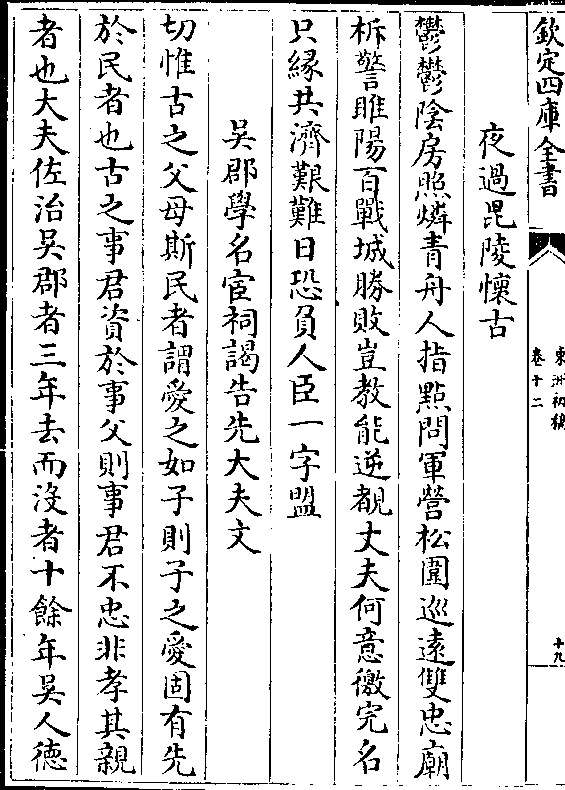 欽定四庫全書
東洲初稿
卷十二
十九
夜過毘陵懷古
鬱鬱陰房照燐青舟人指點問軍營松圍巡遠雙忠廟
柝警睢陽百戰城勝敗豈教能逆覩丈夫何意徼完名
只緣共濟艱難日恐負人臣一字盟
吳郡學名宦祠謁告先大夫文
切惟古之父母斯民者謂愛之如子則子之愛固有先
於民者也古之事君資於事父則事君不忠非孝其親
者也大夫佐治吳郡者三年去而沒者十餘年吳人徳